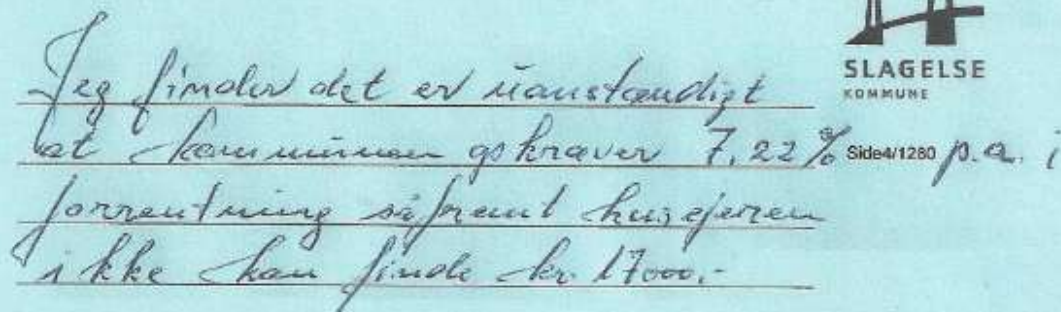 SLAGELSE
KOMMUNE
Jeg finder det er uanstændigt
at kommunen opkræver 7,22% Side4/1280 p.a. i
forrentning såfremt husejeren
ikke kan finde kr. 17000,-